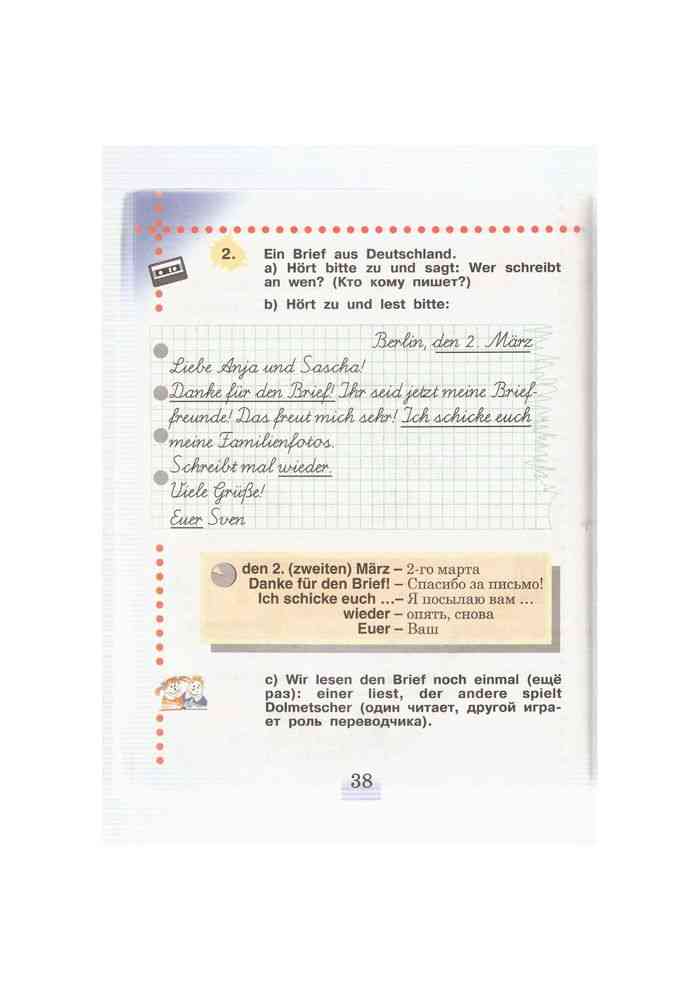 2. Ein Brief aus Deutschland.
a) Hört bitte zu und sagt: Wer schreibt
an wen? (Кто кому пишет?)
b) Hört zu und lest bitte:
Berlin, den 2. März
Liebe Anja und Sascha!
Danke für den Brief! Ihr seid jetzt meine Brief-
freunde! Das freut mich sehr! Ich schicke euch
meine Familienfotos.
Schreibt mal wieder.
Viele Grüße!
Euer Sven
den 2. (zweiten) März – 2-го марта
Danke für den Brief! – Спасибо за письмо!
Ich schicke euch ...– Я посылаю вам ...
wieder – опять, снова
Euer – Ваш
c) Wir lesen den Brief noch einmal (ещё
раз): einer liest, der andere spielt
Dolmetscher (один читает, другой игра-
ет роль переводчика).
38